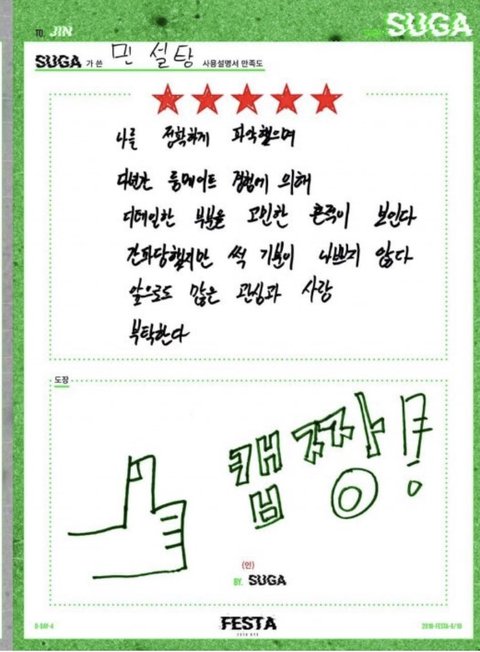 TO. JIN
SUGA
SUGA 가 쓴 민 설탕 사용설명서 만족도
나를 정확하게 파악했으며
다년간 룸메이트 경험에 의해
디테일한 부분을 고민한 흔적이 보인다
간파당했지만 썩 기분이 나쁘지 않다
앞으로도 많은 관심과 사랑
부탁한다
도장
캡 짱!
(인)
BY. SUGA
D-DAY-4
FESTA
2018-FESTA-6/10